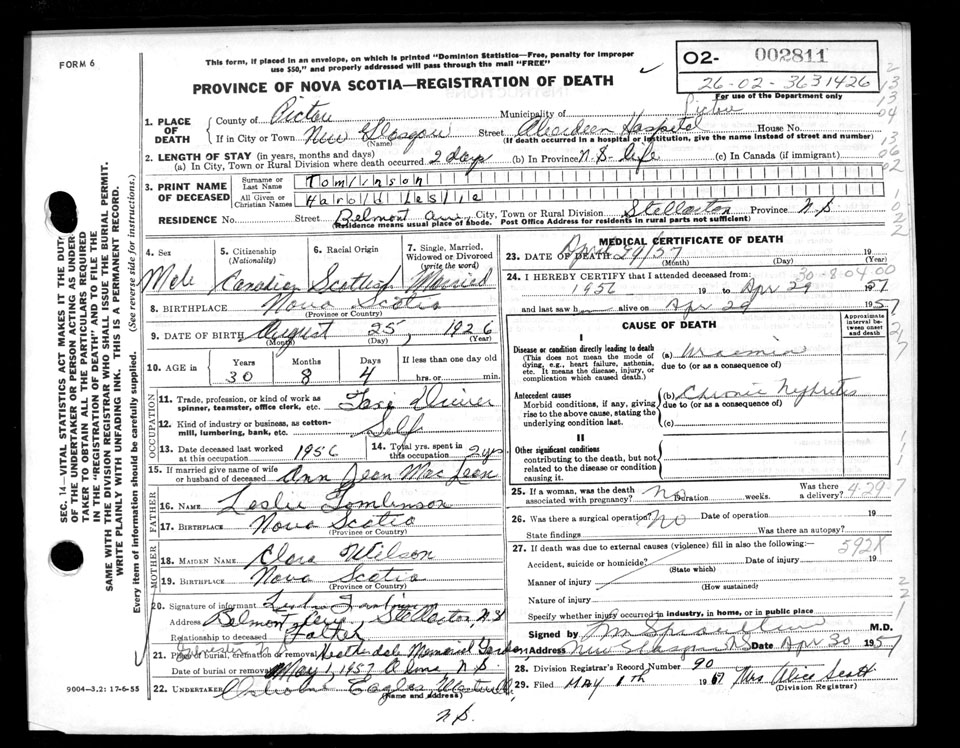 FORM 6
This form, if placed in an envelope, on which is printed "Dominion Statistics—Free, penalty for improper
use $50," and properly addressed will pass through the mail "FREE"
PROVINCE OF NOVA SCOTIA—REGISTRATION OF DEATH
O2- 002811
26-02-3631426
For use of the Department only
1. PLACE OF DEATH
County of Pictou Municipality of Pictou
If in City or Town New Glasgow Street Aberdeen Hospital House No.
(Name) (If death occurred in a hospital or institution, give the name instead of street and number)
2. LENGTH OF STAY (in years, months and days)
(a) In City, Town or Rural Division where death occurred 2 days (b) In Province N.S. life (c) In Canada (if immigrant)
3. PRINT NAME OF DECEASED
Surname or Last Name Tomlinson
All Given or Christian Names Harold Leslie
RESIDENCE No. Street Belmont Ave. City, Town or Rural Division Stellarton Province N.S
(Residence means usual place of abode. Post Office Address for residents in rural parts not sufficient)
4. Sex Male
5. Citizenship (Nationality) Canadian
6. Racial Origin Scottish
7. Single, Married, Widowed or Divorced (write the word) Married
8. BIRTHPLACE Nova Scotia
(Province or Country)
9. DATE OF BIRTH August 25, 1926
(Month) (Day) (Year)
10. AGE in Years 30 Months 8 Days 4 If less than one day old hrs. or min.
OCCUPATION
11. Trade, profession, or kind of work as spinner, teamster, office clerk, etc. Taxi Driver
12. Kind of industry or business, as cotton-mill, lumbering, bank, etc. Self
13. Date deceased last worked at this occupation 1956
14. Total yrs. spent in this occupation 2 yrs
15. If married give name of wife or husband of deceased Ann Jean MacLean
FATHER
16. NAME Leslie Tomlinson
17. BIRTHPLACE Nova Scotia
(Province or Country)
MOTHER
18. MAIDEN NAME Clara Wilson
19. BIRTHPLACE Nova Scotia
(Province or Country)
20. Signature of informant Leslie Tomlinson
Address Belmont Ave, Stellarton, N.S
Relationship to deceased Father
21. Place of burial, cremation or removal Heatherdale Memorial Gardens
Date of burial or removal May 1, 1957 Alma N.S.
22. UNDERTAKER Eagles, Westville,
(Name and address)
N.S.
MEDICAL CERTIFICATE OF DEATH
23. DATE OF DEATH Apr 29/57 19
(Month) (Day) (Year)
30-8-04-00
24. I HEREBY CERTIFY that I attended deceased from:
1956 19 to Apr 29 1957
and last saw h alive on Apr 29 1957
CAUSE OF DEATH
Approximate interval between onset and death
I
Disease or condition directly leading to death
(This does not mean the mode of dying, e.g., heart failure, asthenia, etc. It means the disease, injury, or complication which caused death.)
(a) Uraemia
due to (or as a consequence of)
Antecedent causes
Morbid conditions, if any, giving rise to the above cause, stating the underlying condition last.
(b) Chronic Nephritis
due to (or as a consequence of)
(c)
II
Other significant conditions
contributing to the death, but not related to the disease or condition causing it.
25. If a woman, was the death associated with pregnancy? No Duration weeks. Was there a delivery? 4-29-7
26. Was there a surgical operation? No Date of operation 19
State findings Was there an autopsy?
27. If death was due to external causes (violence) fill in also the following:— 592X
Accident, suicide or homicide? Date of injury 19
(State which)
Manner of injury
(How sustained)
Nature of injury
Specify whether injury occurred in industry, in home, or in public place
Signed by M.D.
Address New Glasgow NS Date Apr 30 1957
28. Division Registrar's Record Number 90
29. Filed MAY 1th 1957 Mrs Alice Scott
(Division Registrar)
9004-3.2: 17-6-55
SEC. 14—VITAL STATISTICS ACT MAKES IT THE DUTY OF THE UNDERTAKER OR PERSON ACTING AS UNDERTAKER TO OBTAIN ALL THE PARTICULARS REQUIRED IN THE "REGISTRATION OF DEATH" AND TO FILE THE SAME WITH THE DIVISION REGISTRAR WHO SHALL ISSUE THE BURIAL PERMIT.
WRITE PLAINLY WITH UNFADING INK. THIS IS A PERMANENT RECORD.
Every item of information should be carefully supplied. (See reverse side for instructions.)